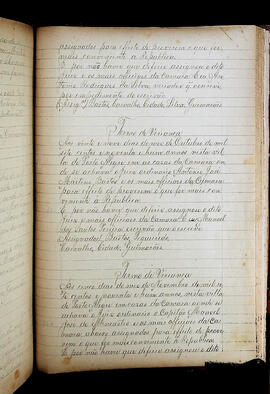 assignados para effeito de proverem o que for
mais conveniente a Republica
E por não haver que deferir assignou o dito
Juiz e os mais officiaes da Camara Eu
Rodrigues da Silva vereador q. escrevi
por impedimento do escrivão
Bastos, Carvalho, Cidade, Silva, Guimarães
Termo de Vereança
Aos vinte e nove dias do mez de Outubro de mil
sete centos e noventa e hum annos nesta vil-
la de Porto Alegre em as casas da Camara on-
de se achavam o Juiz ordinario Antonio José
Martins Bastos e os mais officiaes da Camara
para effeito de proverem o que for mais con-
veniente á Republica
E por não haver que deferir assignou o dito
Juiz e mais officiaes da Camara Eu Manoel
escrivão que o escrevi
Assignados, Bastos,
Carvalho, Cidade, Guimarães
Termo de Vereança
Aos cinco dias do mez de Novembro de mil se-
te centos e noventa e hum annos, nesta villa
de Porto Alegre em casas da Camara onde se
achava o Juiz ordinario o Capitão Manoel
José de e os mais officiaes da Ca-
mara abaixo assignados para effeito de prove-
rem o que for mais conveniente á Republica
E por não haver que deferir assignou o dito